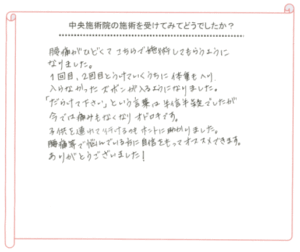 中央施術院の施術を受けてみてどうでしたか？
腰痛がひどくてこちらで施術してもらうように
なりました。
1回目、2回目とうけていくうちに体重も入り、
入らなかったズボンが入るようになりました。
「だらけて下さい」という言葉は半信半疑でしたが
今では痛みもなくなりオドロキです。
子供を連れて行けるのもホントに助かりました。
腰痛等で悩んでいる方に自信をもってオススメできます。
ありがとうございました！